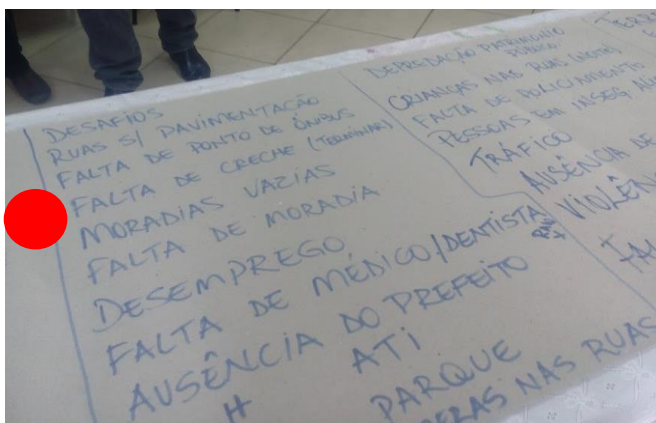 DESAFIOS
RUAS S/ PAVIMENTAÇÃO
FALTA DE PONTO DE ÔNIBUS
FALTA DE CRECHE (TERMINAR)
MORADIAS VAZIAS
FALTA DE MORADIA
DESEMPREGO
FALTA DE MÉDICO/DENTISTA
AUSÊNCIA DO PREFEITO
H ATI
PARQUE
NAS RUAS
DEPREDAÇÃO PATRIMONIO
PÚBLICO
CRIANÇAS NAS RUAS (NOITE)
FALTA DE POLICIAMENTO
PESSOAS EM INSEG
TRÁFICO
AUSÊNCIA DE